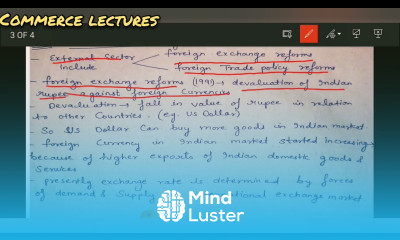 COMMERCE LECTURES
3 OF 4
foreign exchange reforms
External Sector
Include
foreign Trade policy reforms
- foreign exchange reforms (1991)→ devaluation of Indian
rupee against foreign currencies
Devaluation→ fall in value of rupee in relation
to other Countries. (eg. US Dollar)
- So US Dollar Can buy more goods in Indian market
- foreign Currency in Indian market started Increasing
because of higher exports of Indian domestic goods &
Services
- presently exchange rate is determined by forces
of demand & Supply exchange market
Mind
Luster